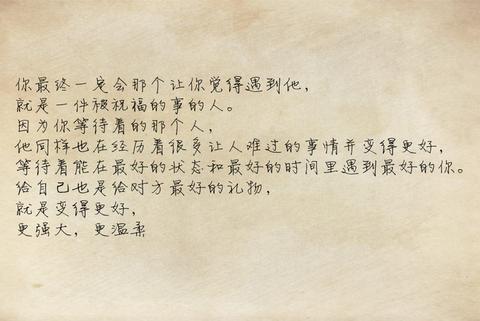 你最终一定会那个让你觉得遇到他，
就是一件被祝福的事的人。
因为你等待着的那个人，
他同样也在经历着很多让人难过的事情并变得更好，
等待着能在最好的状态和最好的时间里遇到最好的你。
给自己也是给对方最好的礼物，
就是变得更好，
更强大，更温柔